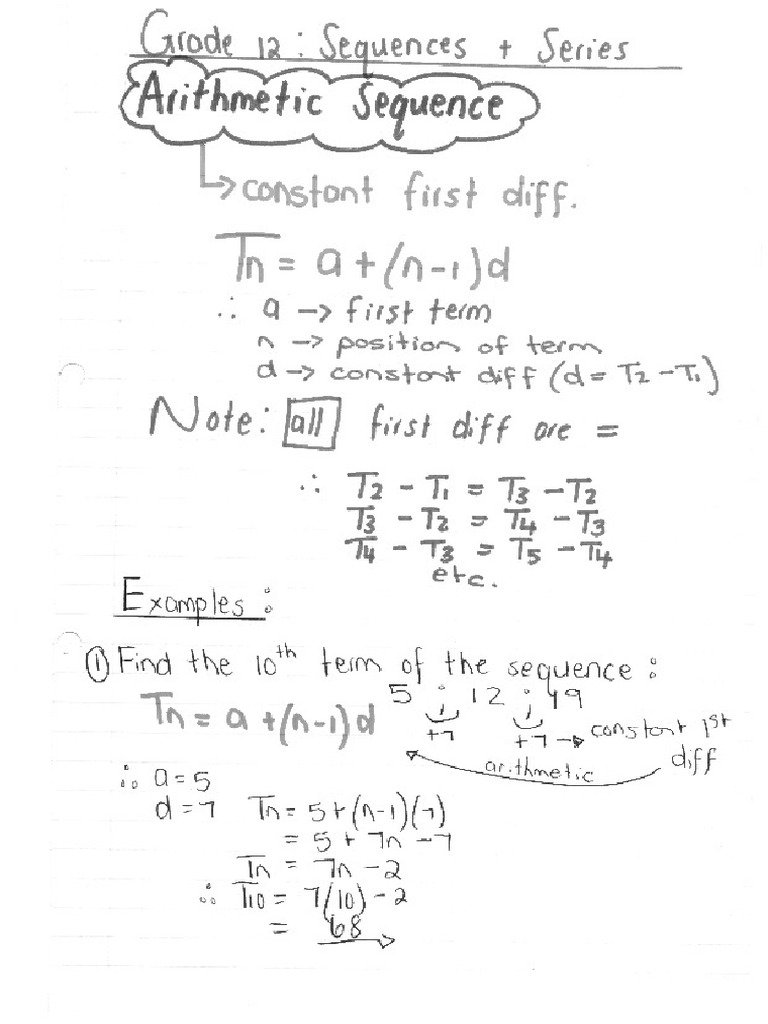 Grade 12 : Sequences + Series
Arithmetic Sequence
↳ constant first diff.
Tn = a + (n-1)d
∴ a → first term
n → position of term
d → constant diff (d = T2 - T1)
Note: all first diff are =
∴ T2 - T1 = T3 - T2
T3 - T2 = T4 - T3
T4 - T3 = T5 - T4
etc.
Examples :
① Find the 10th term of the sequence :
5 ; 12 ; 19
Tn = a + (n-1)d
+7 +7 → constant 1st diff
arithmetic
∴ a = 5
d = 7 Tn = 5 + (n-1)(7)
= 5 + 7n - 7
Tn = 7n - 2
∴ T10 = 7(10) - 2
= 68